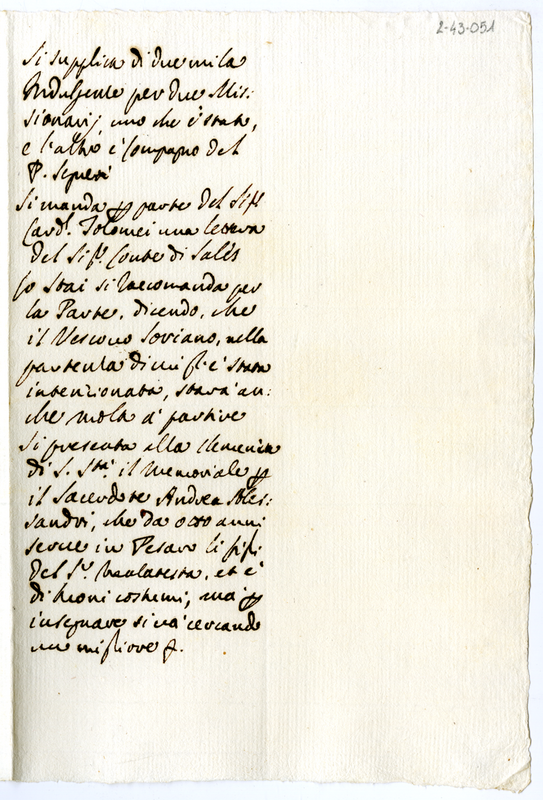 2-43-051
Si supplica di due mila
Indulgenze per due Mis:
sionarij uno che è stato,
e l'altro è Compagno del
P. Segneri
Si manda p parte del Sigr
Card. Tolomei una lettera
del Sigr. Conte di Sales
Stai si raccomanda per
la Parte, dicendo, che
il Vescovo Soriano, nella
partenza di è stata
intenzionata, starà an:
che molto à partire
Si presenta alla clemenza
di S. Stà. il Memoriale p
il Sacerdote Andrea Ales:
sandri, che da otto anni
serve in Pesaro li figli
del Sr. Malatesta, et è
di buoni costumi, ma p
insegnare si và cercando
un migliore